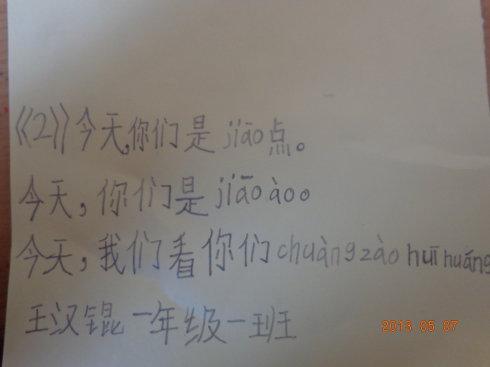 《《2》》今天,你们是jiāo点。
今天,你们是jiāo ào。
今天,我们看你们chuàngzào huī huáng
王汉锟一年级一班
2013 05 07